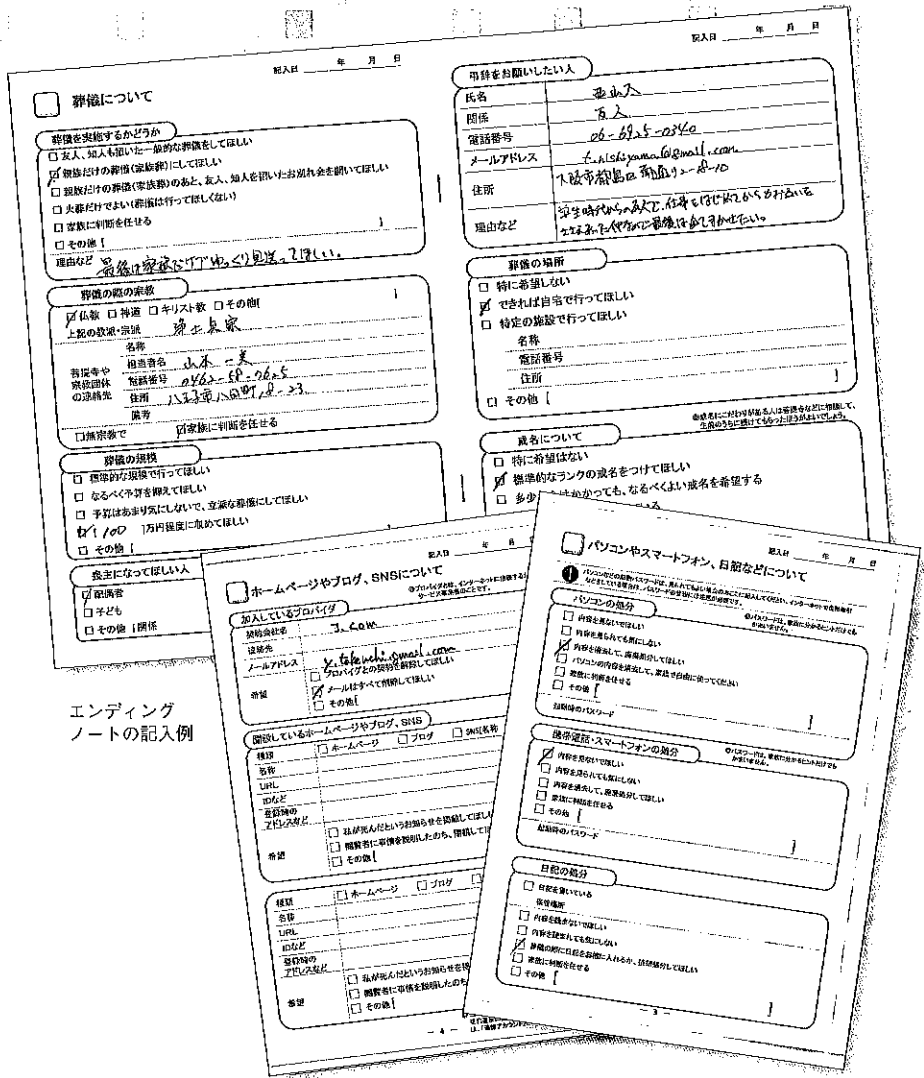 記入日 年 月 日
葬儀について
葬儀を実施するかどうか
□ 友人、知人も招いた一般的な葬儀をしてほしい
☑ 親族だけの葬儀(家族葬)にしてほしい
□ 親族だけの葬儀(家族葬)のあと、友人、知人を招いたお別れ会を開いてほしい
□ 火葬だけでよい(葬儀は行ってほしくない)
□ 家族に判断を任せる
□ その他 [
理由など 最後は家族だけでゆっくり見送ってほしい。
葬儀の際の宗教
☑ 仏教 □ 神道 □ キリスト教 □ その他[ ]
上記の教派・宗派 浄土真宗
名称
菩提寺や宗教団体の連絡先
担当者名 山本 一美
電話番号 0462-58-0625
住所 八王子市八日町,8-23
備考
□ 無宗教で ☑ 家族に判断を任せる
葬儀の規模
□ 標準的な規模で行ってほしい
□ なるべく予算を抑えてほしい
□ 予算はあまり気にしないで、立派な葬儀にしてほしい
☑ [100 ]万円程度に収めてほしい
□ その他 [
喪主になってほしい人
☑ 配偶者
□ 子ども
□ その他 [関係
記入日 年 月 日
弔辞をお願いしたい人
氏名
関係 友人
電話番号 06-6925-0340
メールアドレス t.nishiyama@gmail.com
住所 大阪市都島区
理由など 学生時代からの友人で、仕事をはじめてからもお互いを
葬儀の場所
□ 特に希望しない
☑ できれば自宅で行ってほしい
□ 特定の施設で行ってほしい
名称
電話番号
住所
□ その他 [ ]
◎戒名にこだわりがある人は菩提寺などに相談して、
生前のうちに授けてもらったほうがよいでしょう。
戒名について
□ 特に希望はない
☑ 標準的なランクの戒名をつけてほしい
□ 多少 かかっても、なるべくよい戒名を希望する
エンディング
ノートの記入例
記入日 年 月
ホームページやブログ、SNSについて
◎プロバイダとは、インターネットに接続する
サービス事業者のことです。
加入しているプロバイダ
契約会社名 J.com
連絡先
メールアドレス y.takeuchi@gmail.com
希望
□ プロバイダとの契約を解約してほしい
☑ メールはすべて削除してほしい
□ その他[
開設しているホームページやブログ、SNS
種類 □ ホームページ □ ブログ □ SNS[名称
名称
URL
IDなど
登録時の
アドレスなど
希望
□ 私が死んだというお知らせを掲載してほしい
□ 閲覧者に事情を説明したのち、閉鎖して
□ その他[
種類 □ ホームページ □ ブログ
名称
URL
IDなど
登録時の
アドレスなど
希望
□ 私が死んだというお知らせを
□ 閲覧者に事情を説明したのち
□ その他[
- 4 -
記入日 年 月 日
パソコンやスマートフォン、日記などについて
パソコンの処分
◎パスワードは、家族に分かるヒントだけでも
かまいません。
□ 内容を見ないでほしい
□ 内容を見られても気にしない
☑ 内容を消去して、廃棄処分してほしい
□ パソコンの内容を消去して、家族で自由に使ってください
□ 家族に判断を任せる
□ その他 [ ]
起動時のパスワード
携帯電話・スマートフォンの処分
◎パスワードは、家族に分かるヒントだけでも
かまいません。
☑ 内容を見ないでほしい
□ 内容を見られても気にしない
□ 内容を消去して、廃棄処分してほしい
□ 家族に判断を任せる
□ その他 [ ]
起動時のパスワード
日記の処分
□ 日記を書いている
保管場所
□ 内容を読まないでほしい
□ 内容を読まれても気にしない
☑ 葬儀の際に日記をお棺に入れるか、焼却処分してほしい
□ 家族に判断を任せる
□ その他 [ ]
- 3 -